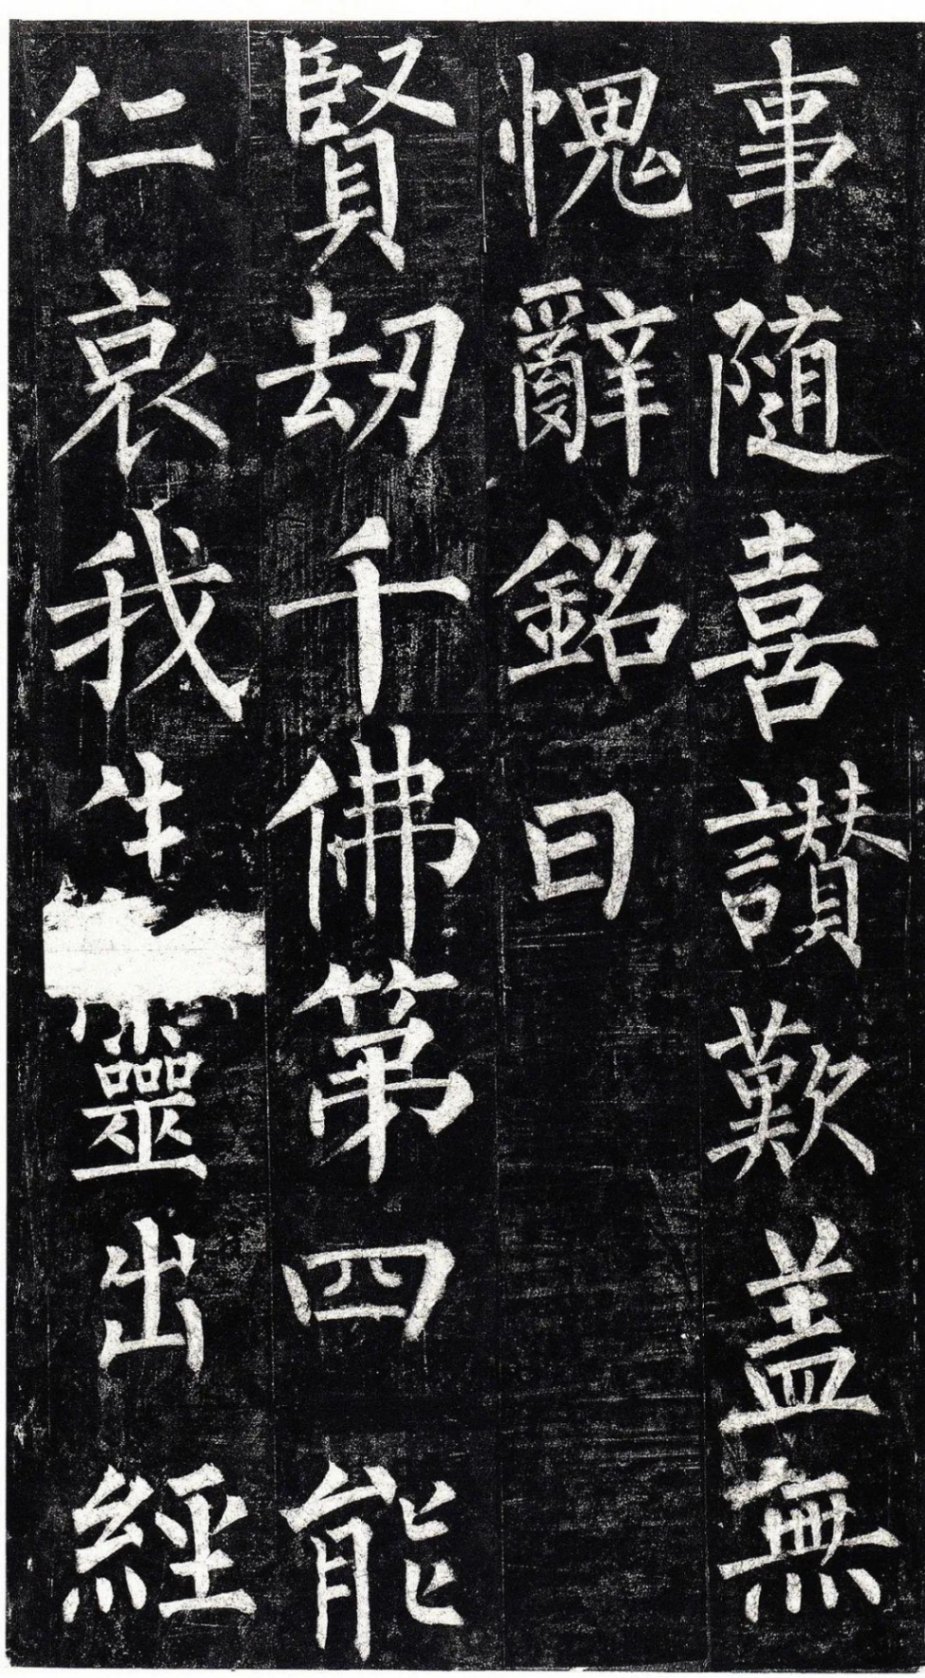 事随喜讃歎盖無
愧辭銘曰
賢刼千佛第四能
仁哀我生靈出經